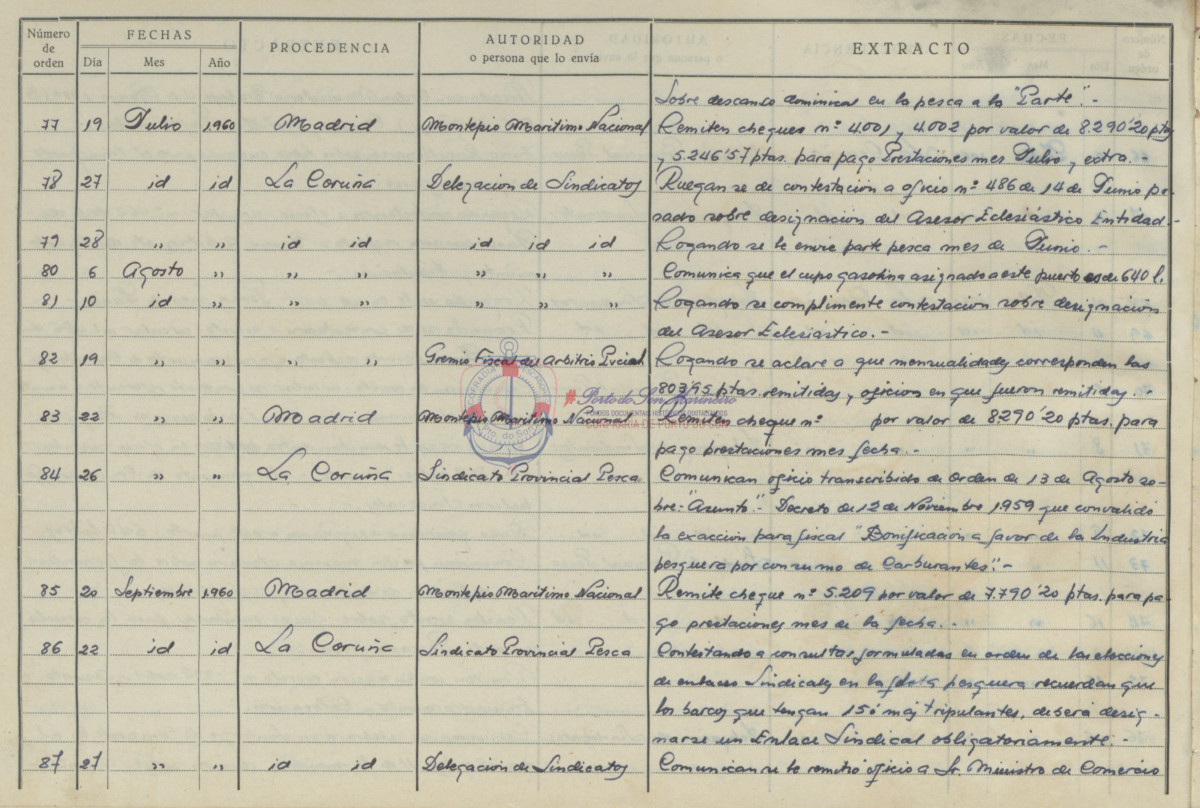 Número de orden FECHAS PROCEDENCIA AUTORIDAD EXTRACTO
Día Mes Año o persona que lo envía
Sobre descanso dominical en la pesca a la "Parte".-
77 19 Julio 1.960 Madrid Montepio Marítimo Nacional Remiten cheques nº 4.001 y 4.002 por valor de 8.290'20 ptas
y 5.246'57 ptas. para pago Prestaciones mes Julio y extra.-
78 27 id id La Coruña Delegación de Sindicatos Ruegan se de contestación a oficio nº 486 de 14 de Junio pa-
sado sobre designación del Asesor Eclesiástico Entidad.-
79 28 " " id id id id id Rogando se le envie parte pesca mes de Junio.-
80 6 Agosto " " " " " " Comunica que el cupo gasolina asignado a este puerto es de 640 l.
81 10 id " " " " " " Rogando se complimente contestación sobre designación
del Asesor Eclesiástico.-
82 19 " " " " Gremio Fiscal del Arbitrio Pvcial Rogando se aclare a que mensualidades corresponden las
803'95 ptas. remitidas y oficios en que fueron remitidas.-
83 22 " " Madrid Montepio Marítimo Nacional Remiten cheque nº por valor de 8.290'20 ptas. para
pago prestaciones mes fecha.-
84 26 " " La Coruña Sindicato Provincial Pesca Comunican oficio transcribido de orden de 13 de Agosto so-
bre: "Asunto".- Decreto de 12 de Noviembre 1.959 que convalidó
la exacción para fiscal "Bonificación a favor de la Industria
pesquera por consumo de Carburantes".-
85 20 Septiembre 1.960 Madrid Montepio Marítimo Nacional Remite cheque nº 5.209 por valor de 7.790'20 ptas. para pa-
go prestaciones mes de la fecha.-
86 22 id id La Coruña Sindicato Provincial Pesca Contestando a consultas formuladas en orden de las elecciones
de enlaces Sindicales en la flota pesquera recuerdan que
los barcos que tengan 15 ó más tripulantes, deberá desig-
narse un Enlace Sindical obligatoriamente.-
87 27 " " id id Delegación de Sindicatos Comunican se le remitió oficio a Sr. Ministro de Comercio
#Porto do Son Mariñeiro
FONDOS DOCUMENTAIS HISTÓRICOS DIXITALIZADOS
CONFRARÍA DE PORTO DO SON